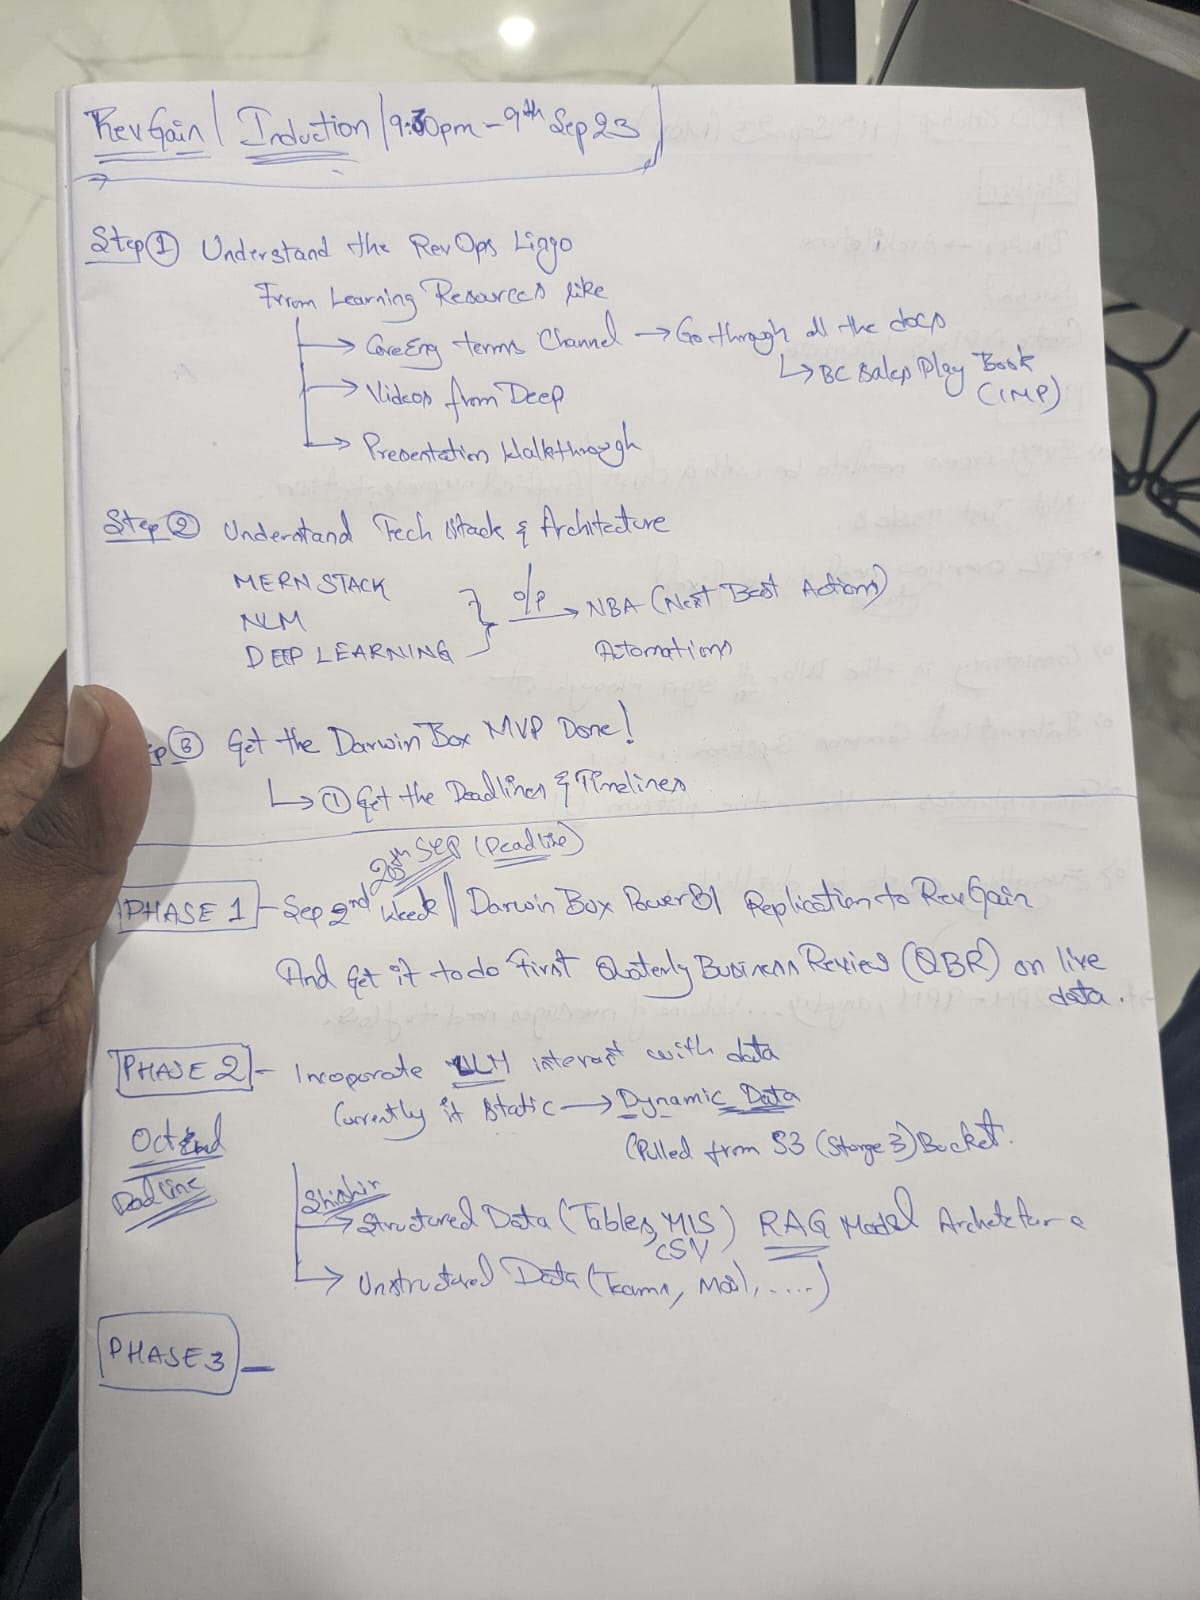 RevGain | Induction | 9:30pm - 9th Sep 23
Step ① Understand the RevOps Liggo
From Learning Resources like
→ CoreEng terms Channel → Go through all the docs
↳ BC Sales Play Book
(IMP)
→ Videos from Deep
→ Presentation Walkthrough
Step ② Understand Tech Stack & Architecture
MERN STACK
NLM
DEEP LEARNING
} o/p → NBA (Next Best Actions)
Automations
p ③ Get the Darwin Box MVP Done!
↳ ① Get the Deadlines & Timelines
20th SEP (Deadline)
PHASE 1 - Sep 2nd Week | Darwin Box PowerBI Replication to RevGain
And Get it to do First Quaterly Business Review (QBR) on live
data.
PHASE 2 - Incoporate LLM interact with data
Currently it static → Dynamic Data
(Pulled from S3 (Storge 3) Bucket.
Oct End
Deadline
Shishir
→ Structured Data (Tables, MIS) RAG Model
CSV
↳ Unstructured Data (Teams, Mail, .....)
PHASE 3 -